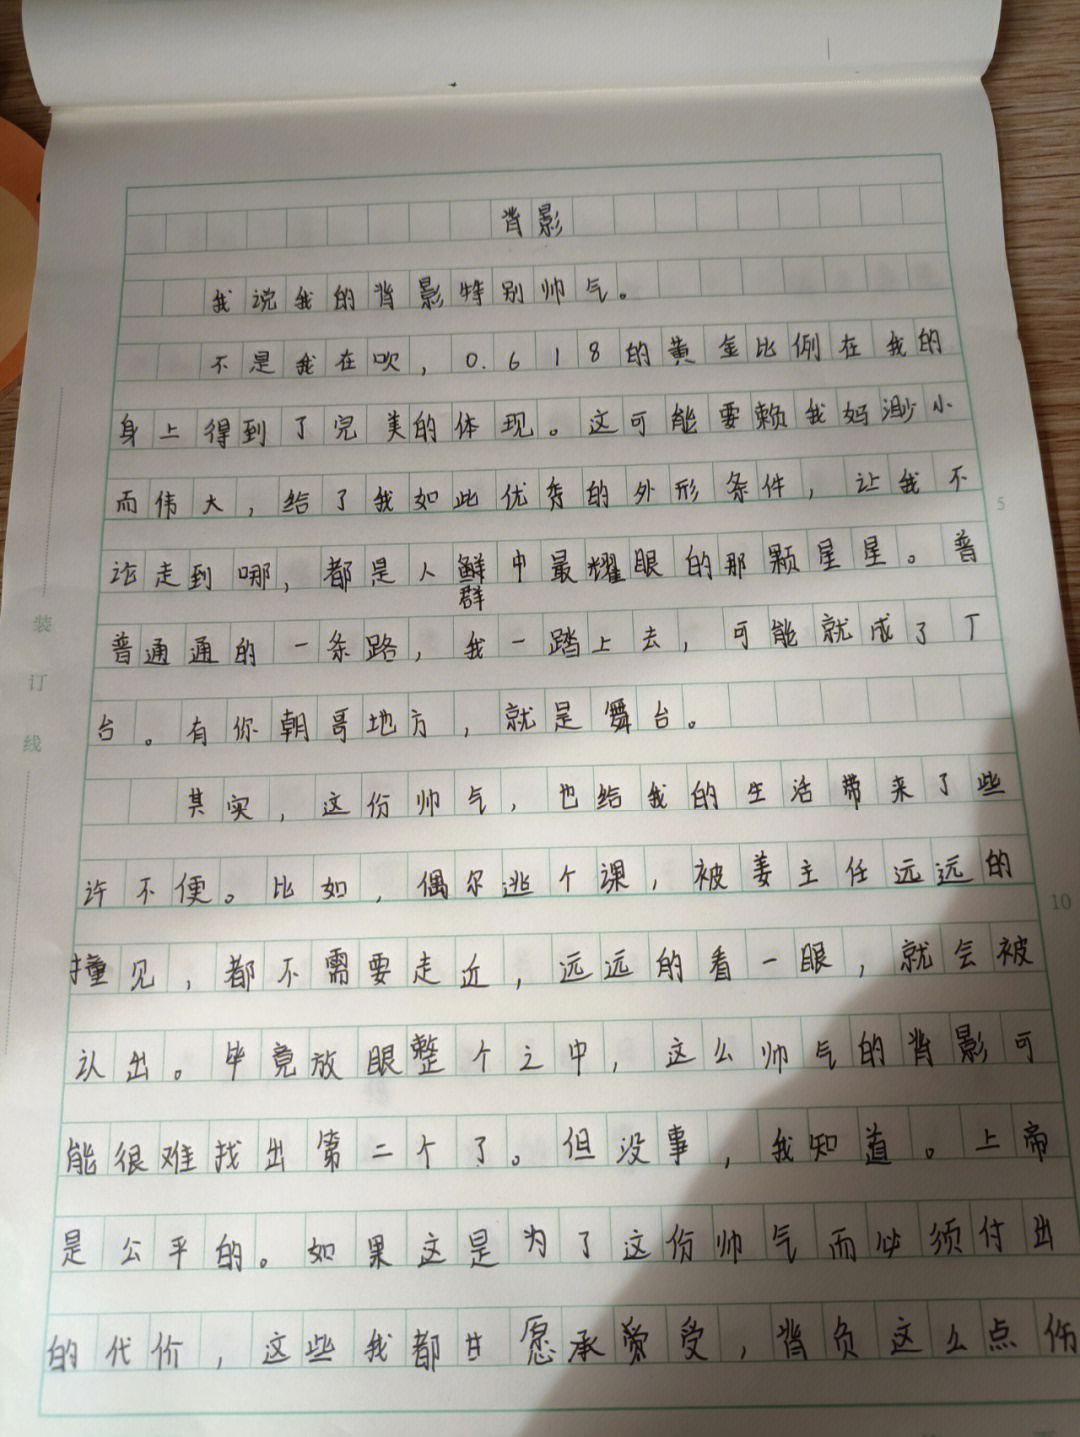 背影
我说我的背影特别帅气。
不是我在吹，0.618的黄金比例在我的
身上得到了完美的体现。这可能要赖我妈渺小
而伟大，给了我如此优秀的外形条件，让我不
论走到哪，都是人群中最耀眼的那颗星星。普
普通通的一条路，我一踏上去，可能就成了丁
台。有你朝哥地方，就是舞台。
5
其实，这份帅气，也给我的生活带来了些
许不便。比如，偶尔逃个课，被姜主任远远的
撞见，都不需要走近，远远的看一眼，就会被
10
认出。毕竟放眼整个之中，这么帅气的背影可
能很难找出第二个了。但没事，我知道。上帝
是公平的。如果这是为了这份帅气而必须付出
的代价，这些我都甘愿承受，背负这么点伤
装订线